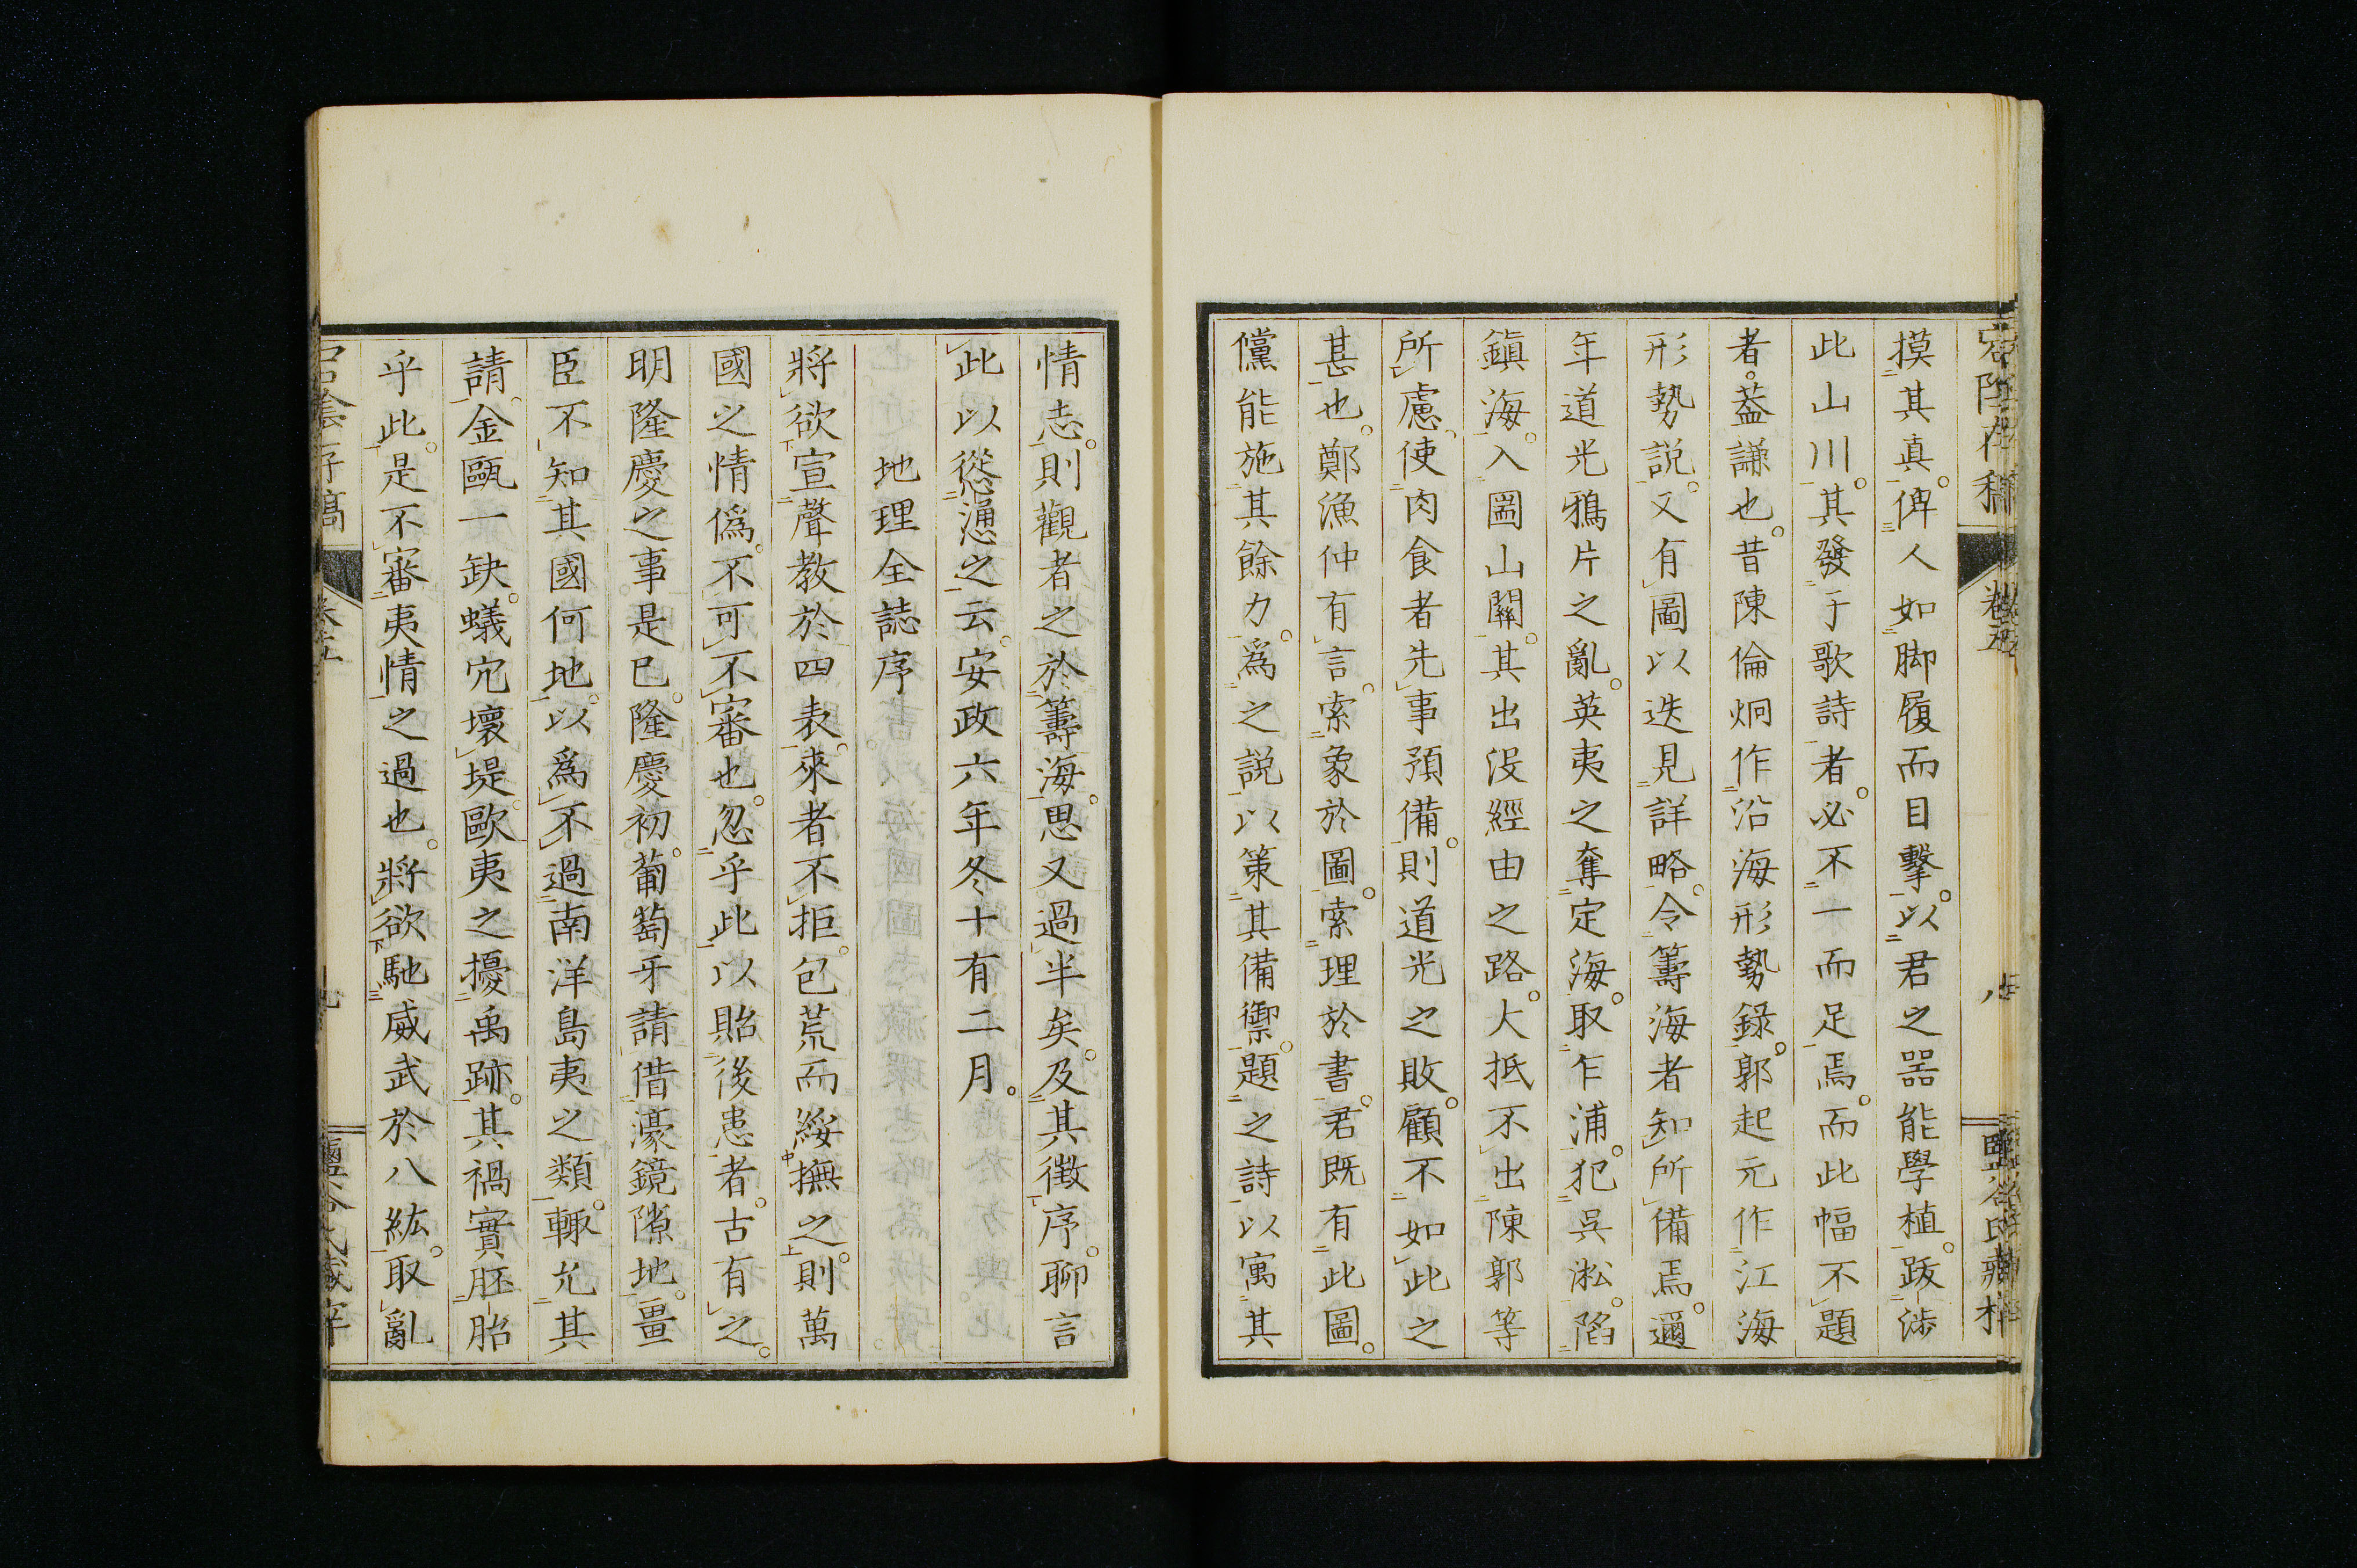 摸其真。俾人如脚履而目擊。以君之器能學植。跋渉
此山川。其發于歌詩者。必不一而足焉。而此幅不題
者。葢謙也。昔陳倫炯作沿海形勢録。郭起元作江海
形勢説。又有圖以迭見詳略。令籌海者知所備焉。邇
年道光鴉片之亂。英夷之奪定海。取乍浦。犯呉淞。陷
鎭海。入圌山關。其出没經由之路。大抵不出陳郭等
所慮。使肉食者先事預備。則道光之敗。顧不如此之
甚也。鄭漁仲有言。索象於圖。索理於書。君既有此圖。
儻能施其餘力。爲之説以策其備禦。題之詩以寓其
情志。則觀者之於籌海。思又過半矣。及其徴序。聊言
此以慫慂之云。安政六年冬十有二月。
地理全誌序
將欲宣聲教於四表。來者不拒。包荒而綏撫之。則萬
國之情僞。不可不審也。忽乎此以貽後患者。古有之。
明隆慶之事是已。隆慶初。葡萄牙請借濠鏡隙地。畺
臣不知其國何地。以爲不過南洋島夷之類。輙允其
請。金甌一缺。蟻穴壞堤。歐夷之擾禹跡。其禍實胚胎
乎此。是不審夷情之過也。將欲馳威武於八紘。取亂
卷五